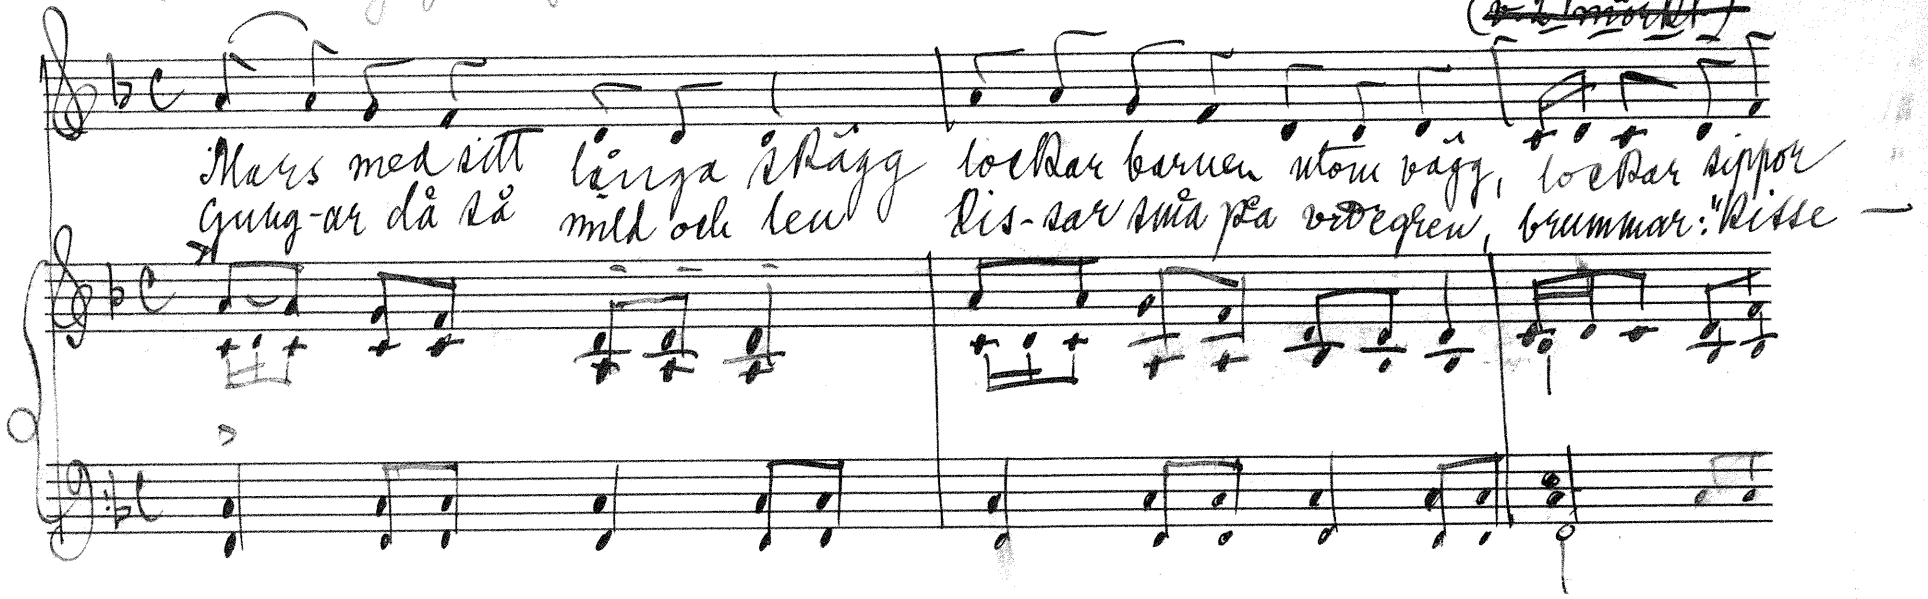 (v. 2 mörkt)
Mars med sitt långa skägg lockar barnen utom vägg, lockar sippor
Gung-ar då så mild och len kis-sar små på videgren, brummar: "Kisse —